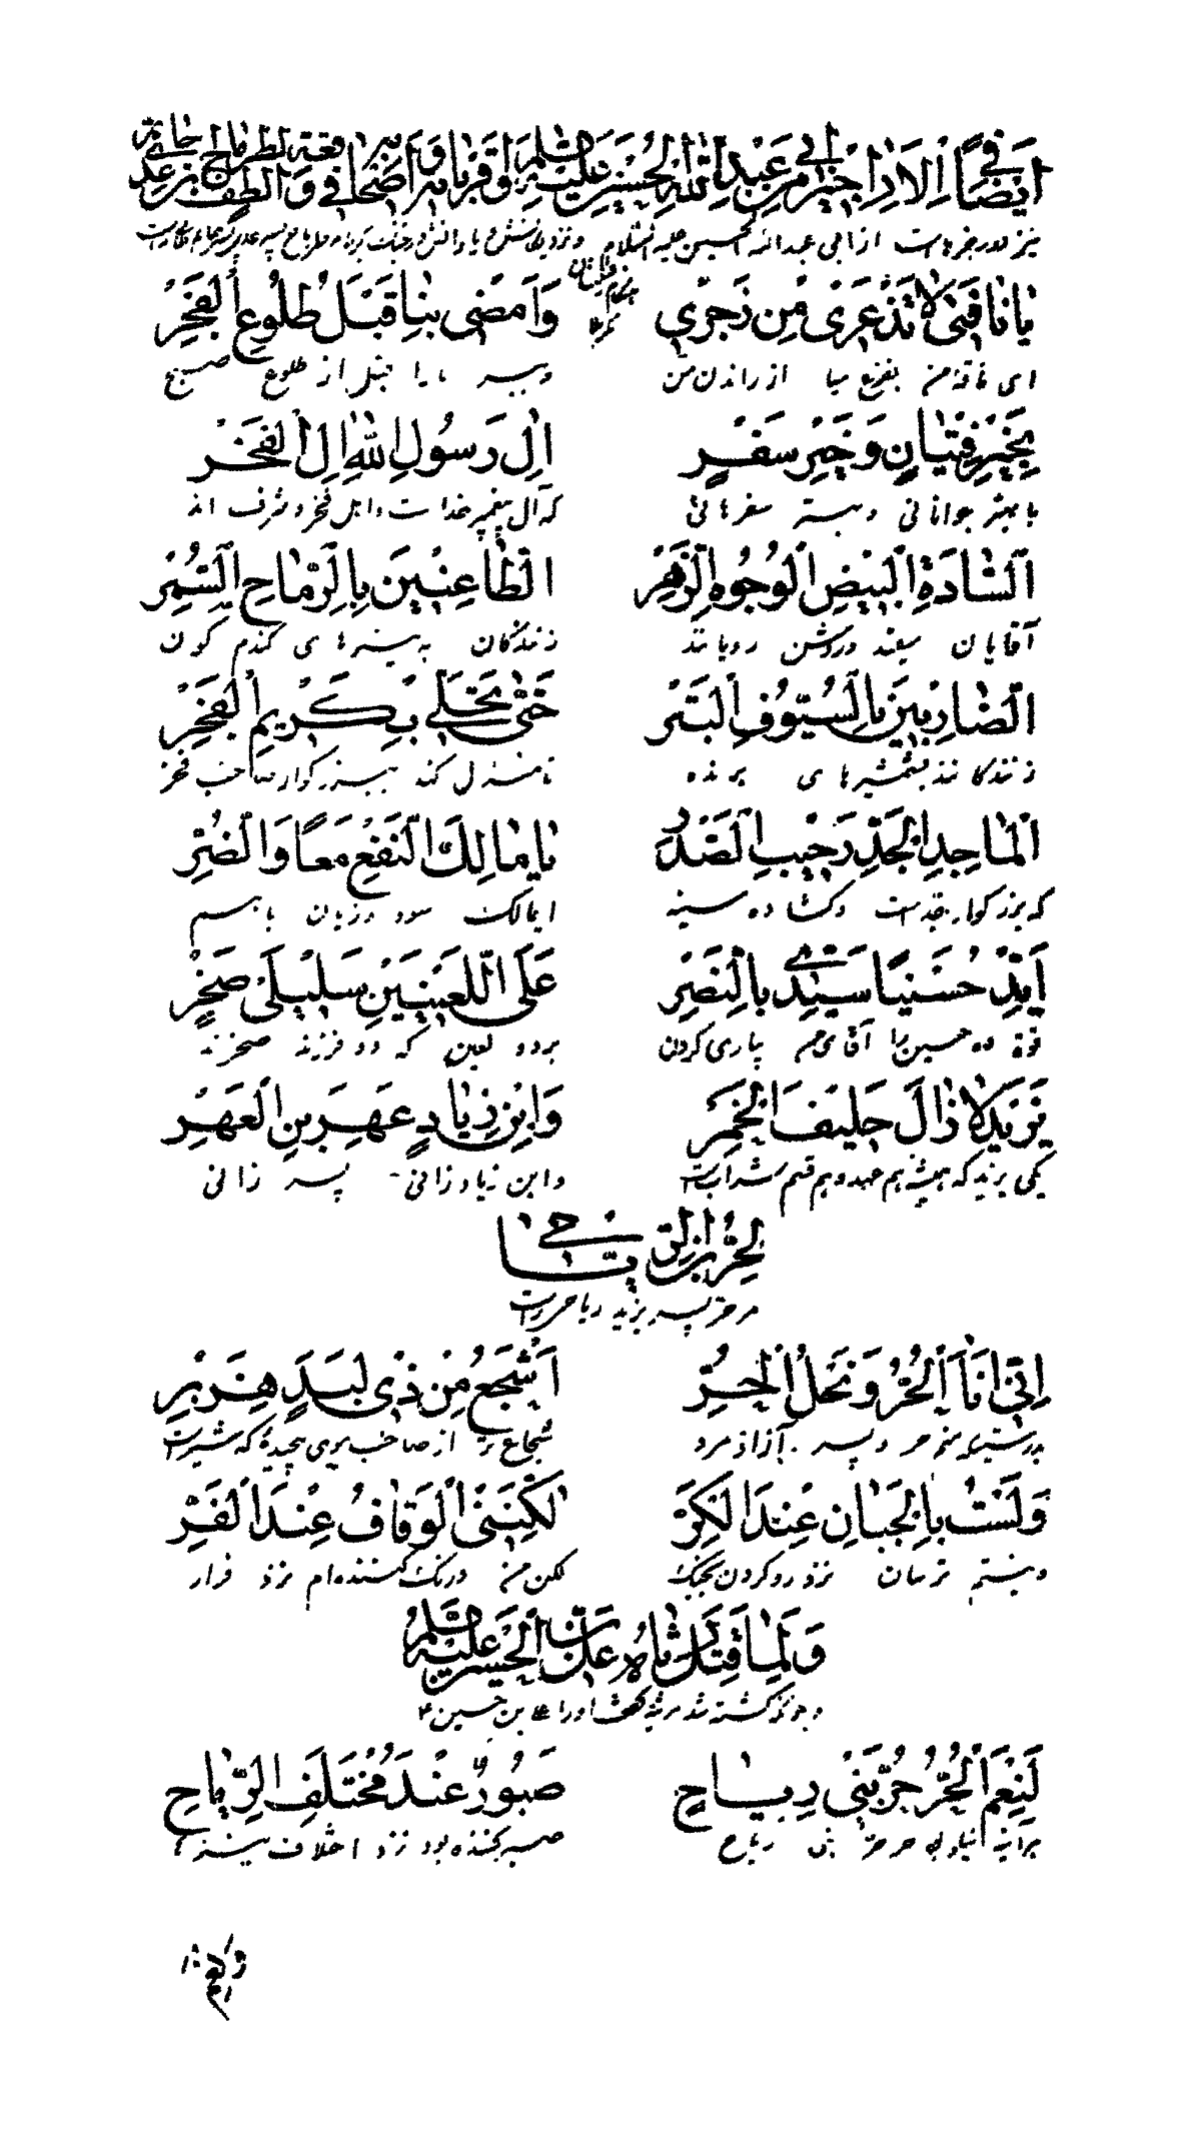 وَفِي أَيْضًا الْأَرَاجِيزِ مِنْ أَبِي عَبْدِ اللهِ الْحُسَيْنِ عَلَيْهِ السَّلَامُ وَأَقْرِبَائِهِ وَأَصْحَابِهِ فِي وَقْعَةِ الطَّفِّ لِطِرِمَّاحِ بْنِ عَدِيٍّ
نیز در رجزهاست از ابی عبدالله الحسین علیه السلام
يَا نَاقَتِي لَا تَذْعَرِي مِنْ زَجْرِي وَامْضِي بِنَا قَبْلَ طُلُوعِ الْفَجْرِ
ای ناقه من بفزع میا از راندن من وببر ما را قبل از طلوع صبح
بِخَيْرِ فِتْيَانٍ وَخَيْرِ سَفْرٍ آلِ رَسُولِ اللهِ آلِ الْفَخْرِ
با بهتر جوانانی و بهتر سفرهائی که آل پیغمبر خداست واهل فخر و شرف اند
اَلسَّادَةِ الْبِيضِ الْوُجُوهِ الزُّهْرِ الطَّاعِنِينَ بِالرِّمَاحِ السُّمْرِ
آقایان سفید و روشن رویانند زنندگان به نیزه های گندم کون
الضَّارِبِينَ بِالسُّيُوفِ الْبُتْرِ حَتَّى تَحَلَّى بِكَرِيمِ الْفَخْرِ
زنندگانند بشمشیرهای برنده تا منزل کند ببزرگوار صاحب فخر
الْمَاجِدِ الْجَدِّ رَحِيبِ الصَّدْرِ يَا مَالِكَ النَّفْعِ مَعًا وَالضُّرِّ
که بزرگوار جد است و کشاده سینه ایمالک سود و زیان باهم
أَيِّدْ حُسَيْنًا سَيِّدِي بِالنَّصْرِ عَلَى اللَّعِينَيْنِ سَلِيلَيْ صَخْرٍ
قوة ده حسین را آقای من بیاری کردن بردو لعین که دو فرزند صخرند
يَزِيدَ لَا زَالَ حَلِيفَ الْخَمْرِ وَابْنِ زِيَادٍ عَهِرِ بْنِ الْعَهْرِ
یکی یزید که همیشه هم عهد و هم قسم شرابست وابن زیاد زانی پسر زانی
لِحُرِّ بْنِ يَزِيدَ الرِّيَاحِي
مر حر پسر یزید ریاحی راست
إِنِّي أَنَا الْحُرُّ وَنَجْلُ الْحُرِّ أَشْجَعُ مِنْ ذِي لِبَدٍ هِزَبْرِ
بدرستیکه منم حر و پسر آزاد مرد شجاع تر از صاحب موی پیچیدۀ که شیر است
وَلَسْتُ بِالْجَبَانِ عِنْدَ الْكَرِّ لَكِنَّنِي الْوَقَّافُ عِنْدَ الْفَرِّ
و نیستم ترسان نزد رو کردن بجنگ لکن من درنگ کننده ام نزد فرار
وَلَمَّا قُتِلَ رَثَاهُ عَلِيُّ بْنُ الْحُسَيْنِ عَلَيْهِ السَّلَامُ
و چونکه کشته شد مرثیه گفت او را علی بن حسین ع
لَنِعْمَ الْحُرُّ حُرُّ بَنِي رِيَاحٍ صَبُورٌ عِنْدَ مُخْتَلَفِ الرِّمَاحِ
هرآینه نیکو بود حر حر بنی ریاح صبر کننده بود نزد اختلاف نیزه